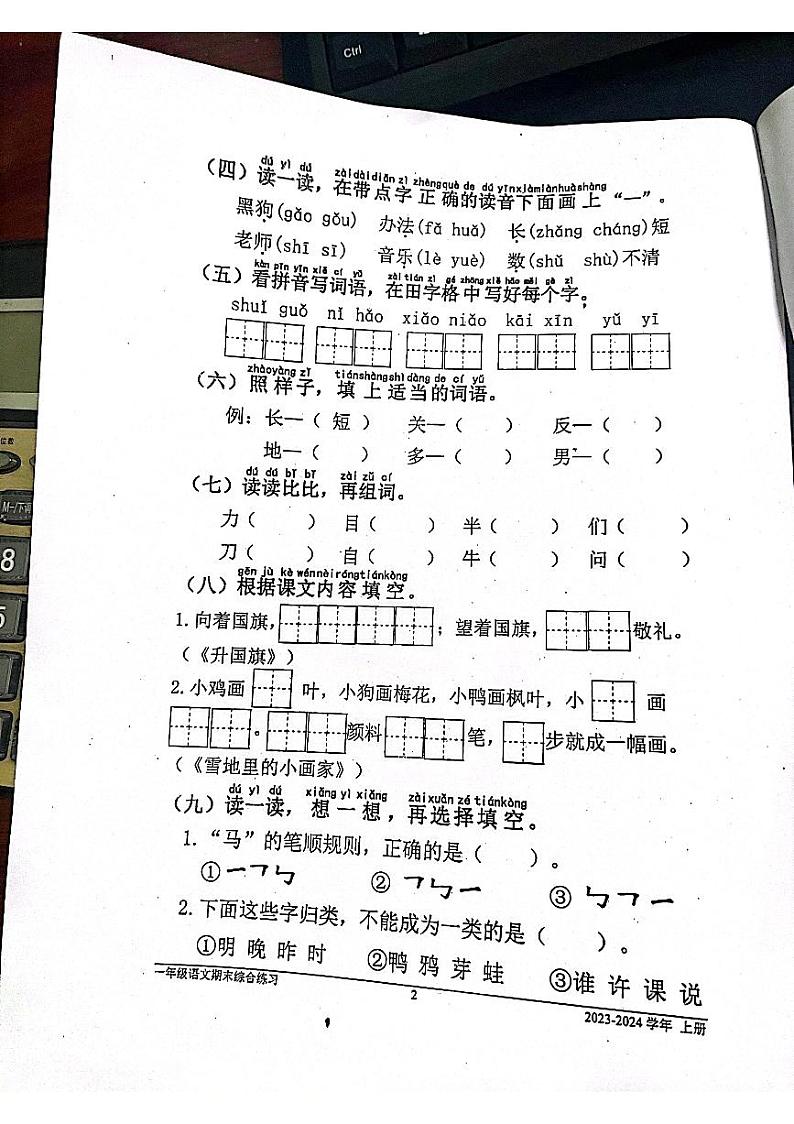 Ctrl
dú yì dú zài dài diǎn zì zhèng què de dú yīn xià miàn huà shàng
（四）读一读，在带点字正确的读音下面画上“一”。
黑狗(gǎo gǒu) 办法(fǎ huǎ) 长(zhǎng cháng)短
老师(shī sī) 音乐(lè yuè) 数(shǔ shù)不清
kàn pīn yīn xiě cí yǔ zài tián zì gé zhōng xiě hǎo měi gè zì
（五）看拼音写词语，在田字格中写好每个字；
shuǐ guǒ nǐ hǎo xiǎo niǎo kāi xīn yǔ yī
zhào yàng zǐ tián shàng shì dàng de cí yǔ
（六）照样子，填上适当的词语。
例：长一（ 短 ） 关一（ ） 反一（ ）
地一（ ） 多一（ ） 男一（ ）
dú dú bǐ bǐ zài zǔ cí
（七）读读比比，再组词。
力（ ） 目（ ） 半（ ） 们（ ）
刀（ ） 自（ ） 牛（ ） 问（ ）
gēn jù kè wén nèi róng tián kòng
（八）根据课文内容填空。
1.向着国旗， ；望着国旗， 敬礼。
（《升国旗》）
2.小鸡画 叶，小狗画梅花，小鸭画枫叶，小 画
。 颜料 笔， 步就成一幅画。
（《雪地里的小画家》）
dú yì dú xiǎng yì xiǎng zài xuǎn zé tián kòng
（九）读一读，想一想，再选择填空。
1.“马”的笔顺规则，正确的是（ ）。
①㇐㇕㇉ ②㇕㇉㇐ ③㇉㇕㇐
2.下面这些字归类，不能成为一类的是（ ）。
①明 晚 昨 时 ②鸭 鸦 芽 蛙 ③谁 许 课 说
一年级语文期末综合练习 2 2023-2024学年 上册
M-/下调
8
5